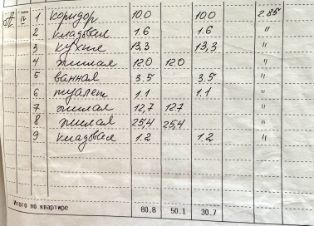 IV 1 коридор 10.0 10.0 2.85
2 кладовая 1.6 1.6 "
3 кухня 13,3 13,3 "
4 жилая 12.0 12.0 "
5 ванная 3.5 3.5 "
6 туалет 1.1 1.1 "
7 жилая 12,7 127 "
8 жилая 25,4 25,4 "
9 кладовая 1.2 1.2 "
Итого по квартире 80.8 50.1 30.7